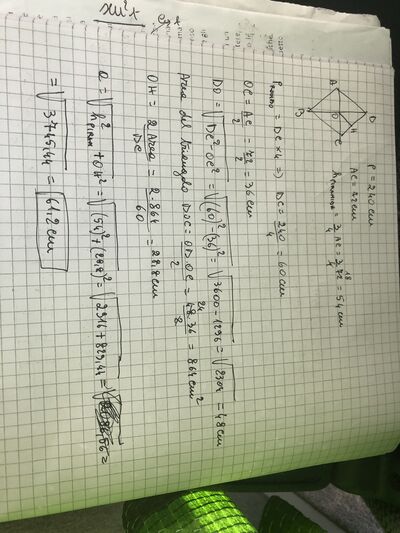 P = 240 cm
AC = 72 cm
h piramide = 3/4 AC = 3/4 · 72 18 = 54 cm
A
B
O
D
H
C
P rombo = DC × 4 => DC = 240/4 = 60 cm
OC = AC/2 = 72/2 = 36 cm
DO = √DC² - OC² = √(60)² - (36)² = √3600 - 1296 = √2304 = 48 cm
Area del triangolo DOC = OD · OC / 2 = 48 24 · 36 / 2 = 864 cm²
OH = 2 Area / DC = 2 · 864 / 60 = 28,8 cm
a = √h² piram + OH² = √(54)² + (28,8)² = √2916 + 829,44 =
= √3745,44 = 61,2 cm